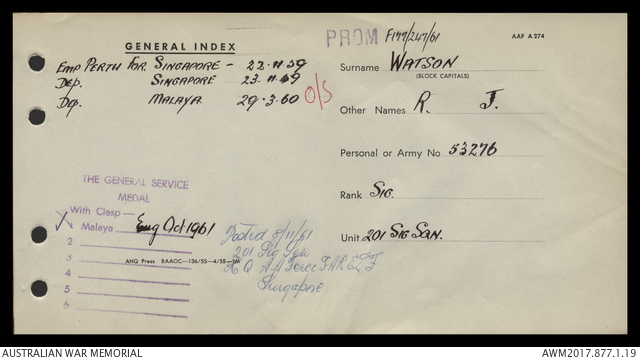 GENERAL INDEX
EMP PERTH FOR SINGAPORE - 22.11.59
DEP. SINGAPORE 23.11.59
Dep. MALAYA 29.3.60 O/S
THE GENERAL SERVICE
MEDAL
With Clasp
1 Malaya Oct 1961
2
3
4
5
6
AHQ Press RAAOC-136/55-4/55-1M
Posted 8/11/61
201 Sig Sqn
H Q A A Force FARELF
Singapore
PROM F177/247/61
AAF A 274
Surname WATSON
(BLOCK CAPITALS)
Other Names R. J.
Personal or Army No 53276
Rank SIG.
Unit 201 SIG SQN.
AUSTRALIAN WAR MEMORIAL
AWM2017.877.1.19